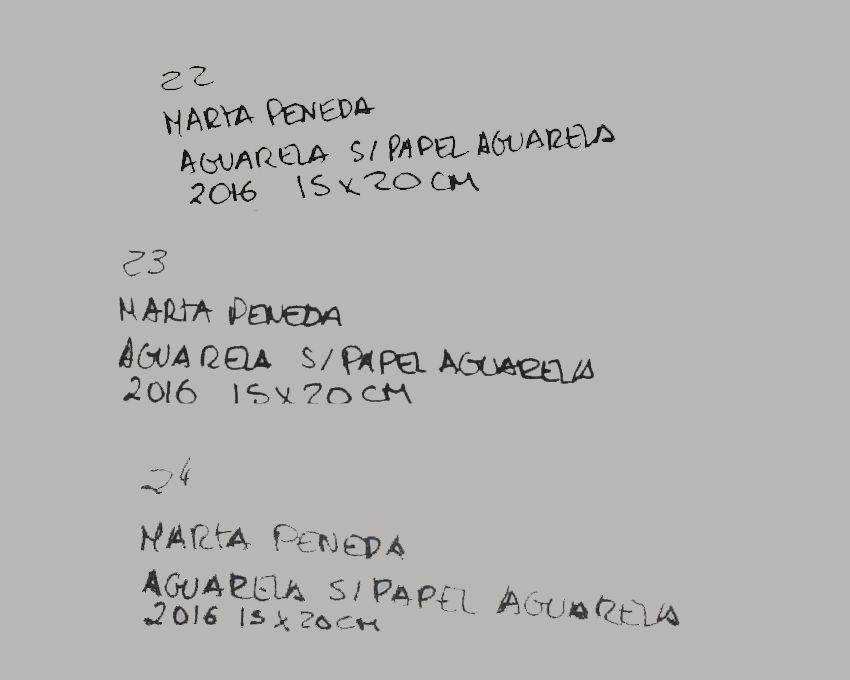 22
MARTA PENEDA
AGUARELA S/PAPEL AGUARELA
2016 15x20CM
23
MARTA PENEDA
AGUARELA S/PAPEL AGUARELA
2016 15x20CM
24
MARTA PENEDA
AGUARELA S/PAPEL AGUARELA
2016 15x20CM